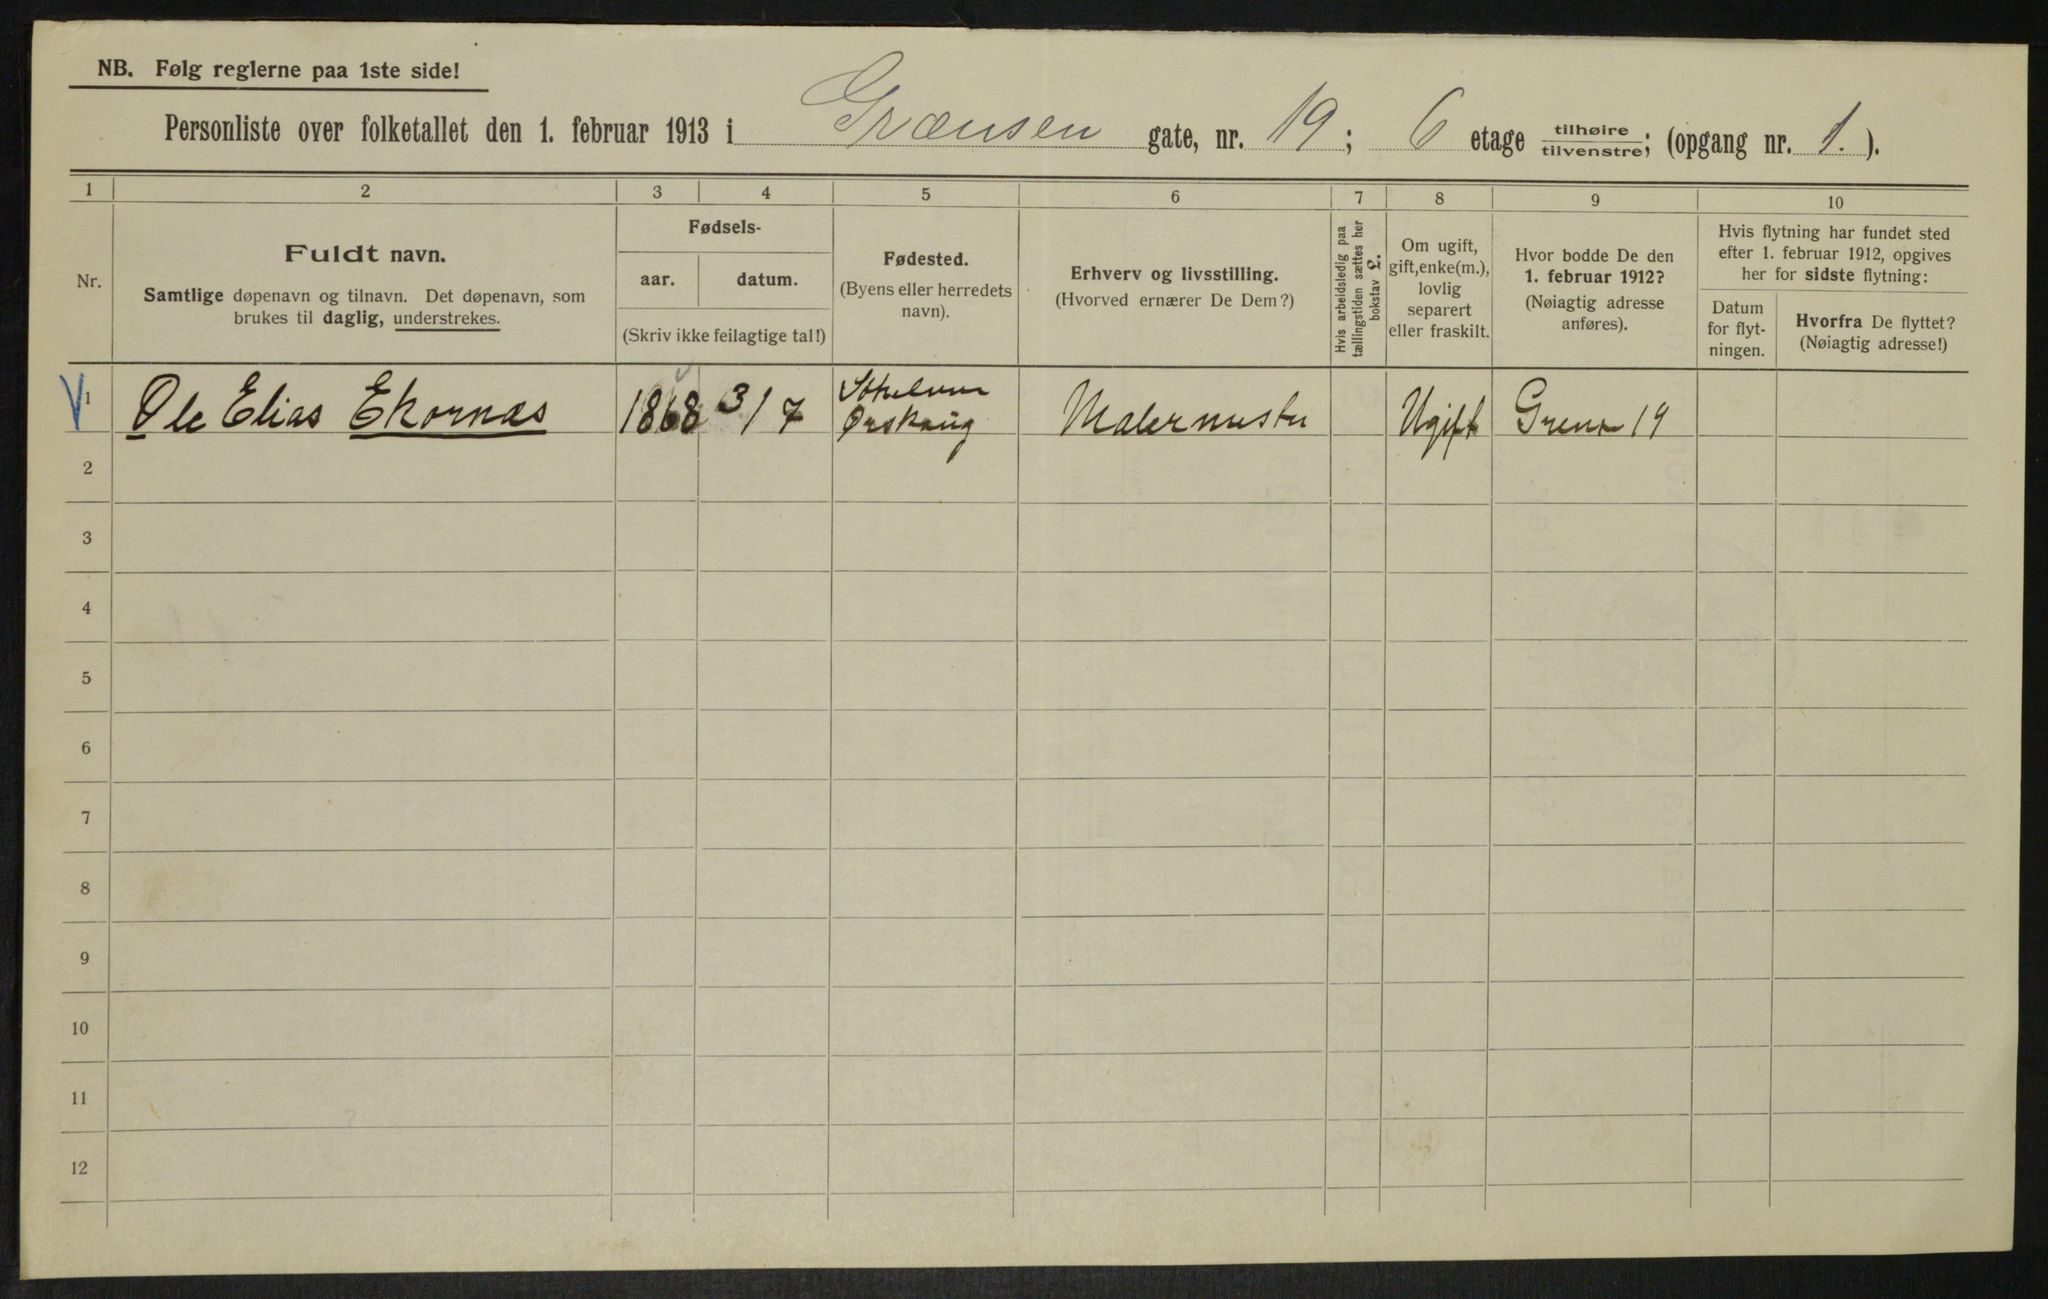 NB. Følg reglerne paa 1ste side!
Personliste over folketallet den 1. februar 1913 i Grænsen gate, nr. 19; 6 etage tilhøire / tilvenstre; (opgang nr. 1.).
1 2 3 4 5 6 7 8 9 10
Nr.
Fuldt navn.
Samtlige døpenavn og tilnavn. Det døpenavn, som
brukes til daglig, understrekes.
Fødsels-
aar. datum.
(Skriv ikke feilagtige tal!)
Fødested.
(Byens eller herredets
navn).
Erhverv og livsstilling.
(Hvorved ernærer De Dem?)
Hvis arbeidsledig paa
tællingstiden sættes her
bokstav L.
Om ugift,
gift, enke(m.),
lovlig
separert
eller fraskilt.
Hvor bodde De den
1. februar 1912?
(Nøiagtig adresse
anføres).
Hvis flytning har fundet sted
efter 1. februar 1912, opgives
her for sidste flytning:
Datum
for flyt-
ningen.
Hvorfra De flyttet?
(Nøiagtig adresse!)
1 Ole Elias Ekornæs 1868 3/7 Ørskoug Malermester Ugift 19
2
3
4
5
6
7
8
9
10
11
12